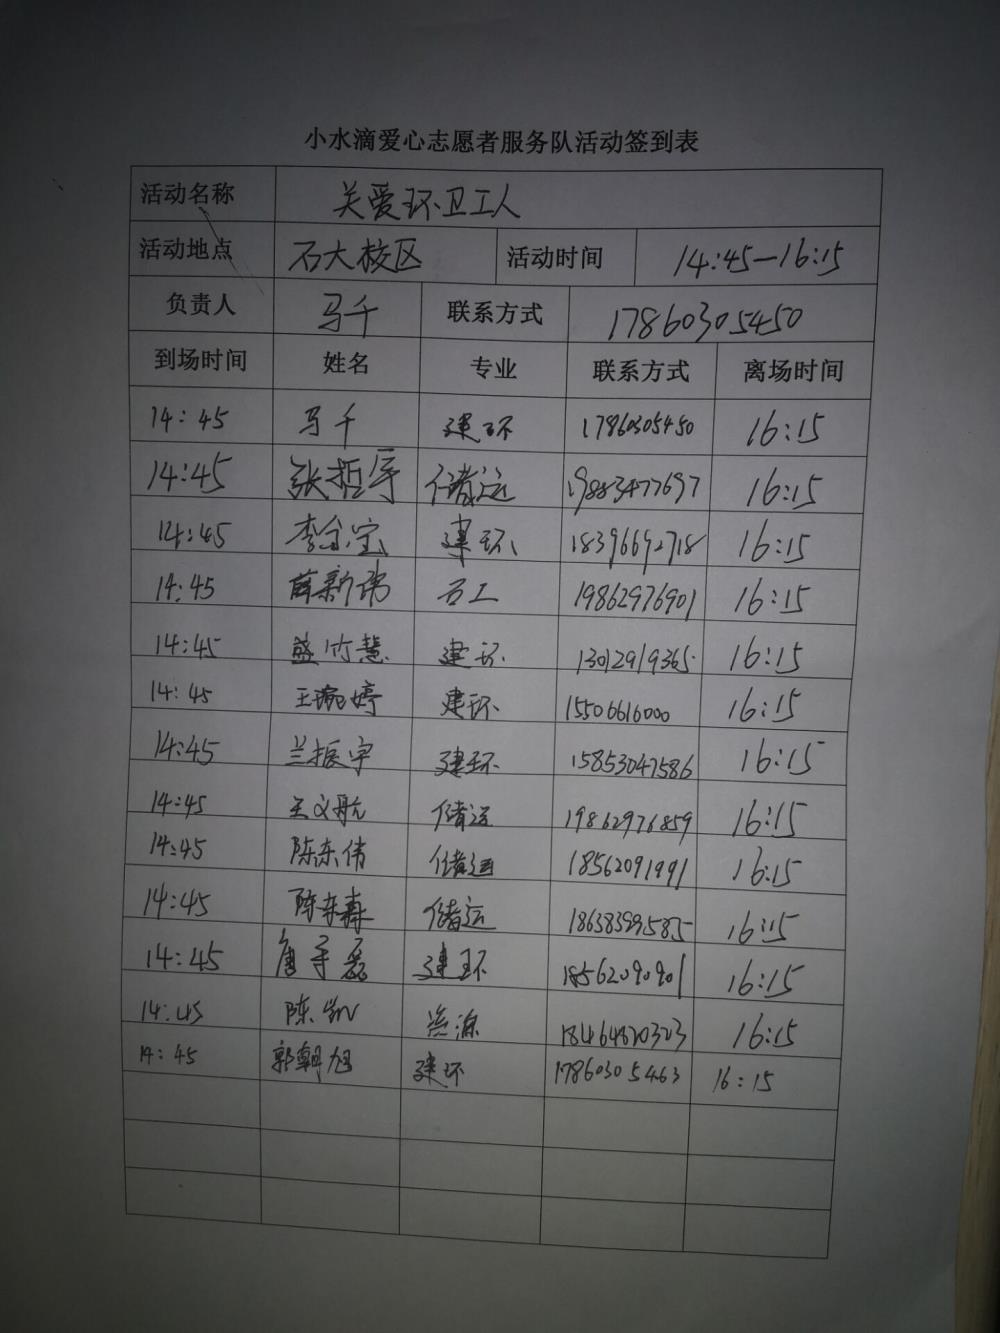 小水滴爱心志愿者服务队活动签到表
活动名称 关爱环卫工人
活动地点 石大校区 活动时间 14:45—16:15
负责人 马千 联系方式 17860305450
到场时间 姓名 专业 联系方式 离场时间
14:45 马千 建环 17860305450 16:15
14:45 张哲宇 储运 19883477697 16:15
14:45 李金宝 建环 18396692718 16:15
14:45 薛新伟 石工 19862976901 16:15
14:45 盛竹慧 建环 13012919365 16:15
14:45 王琬婷 建环 15506616000 16:15
14:45 兰振宇 建环 15853047586 16:15
14:45 王义航 储运 19862976859 16:15
14:45 陈东伟 储运 18562091991 16:15
14:45 陈东森 储运 18638399585 16:15
14:45 唐子磊 建环 16:15
14:45 陈凯 资源 18464820323 16:15
14:45 郭朝旭 建环 17860305463 16:15